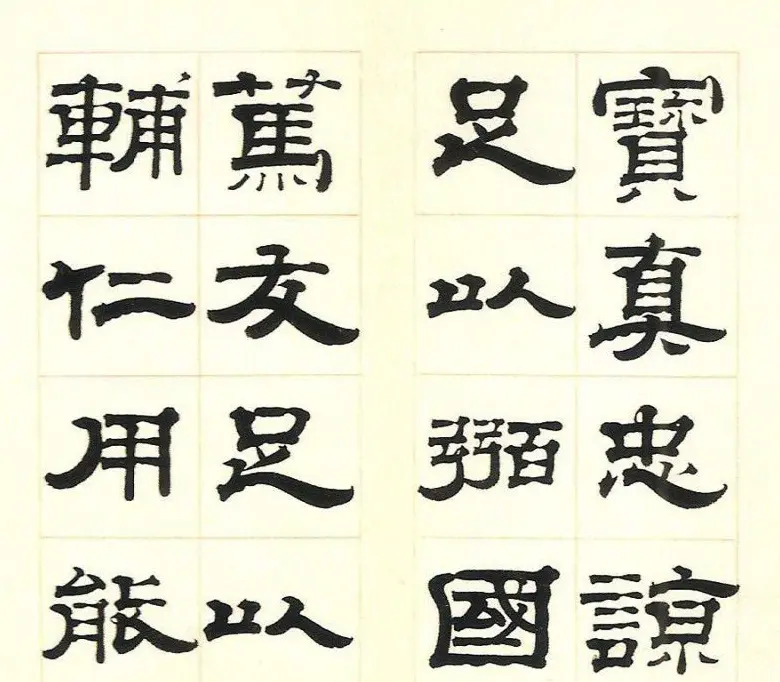 寶真忠諒
足以弻國
䔍友足以
輔仁用能